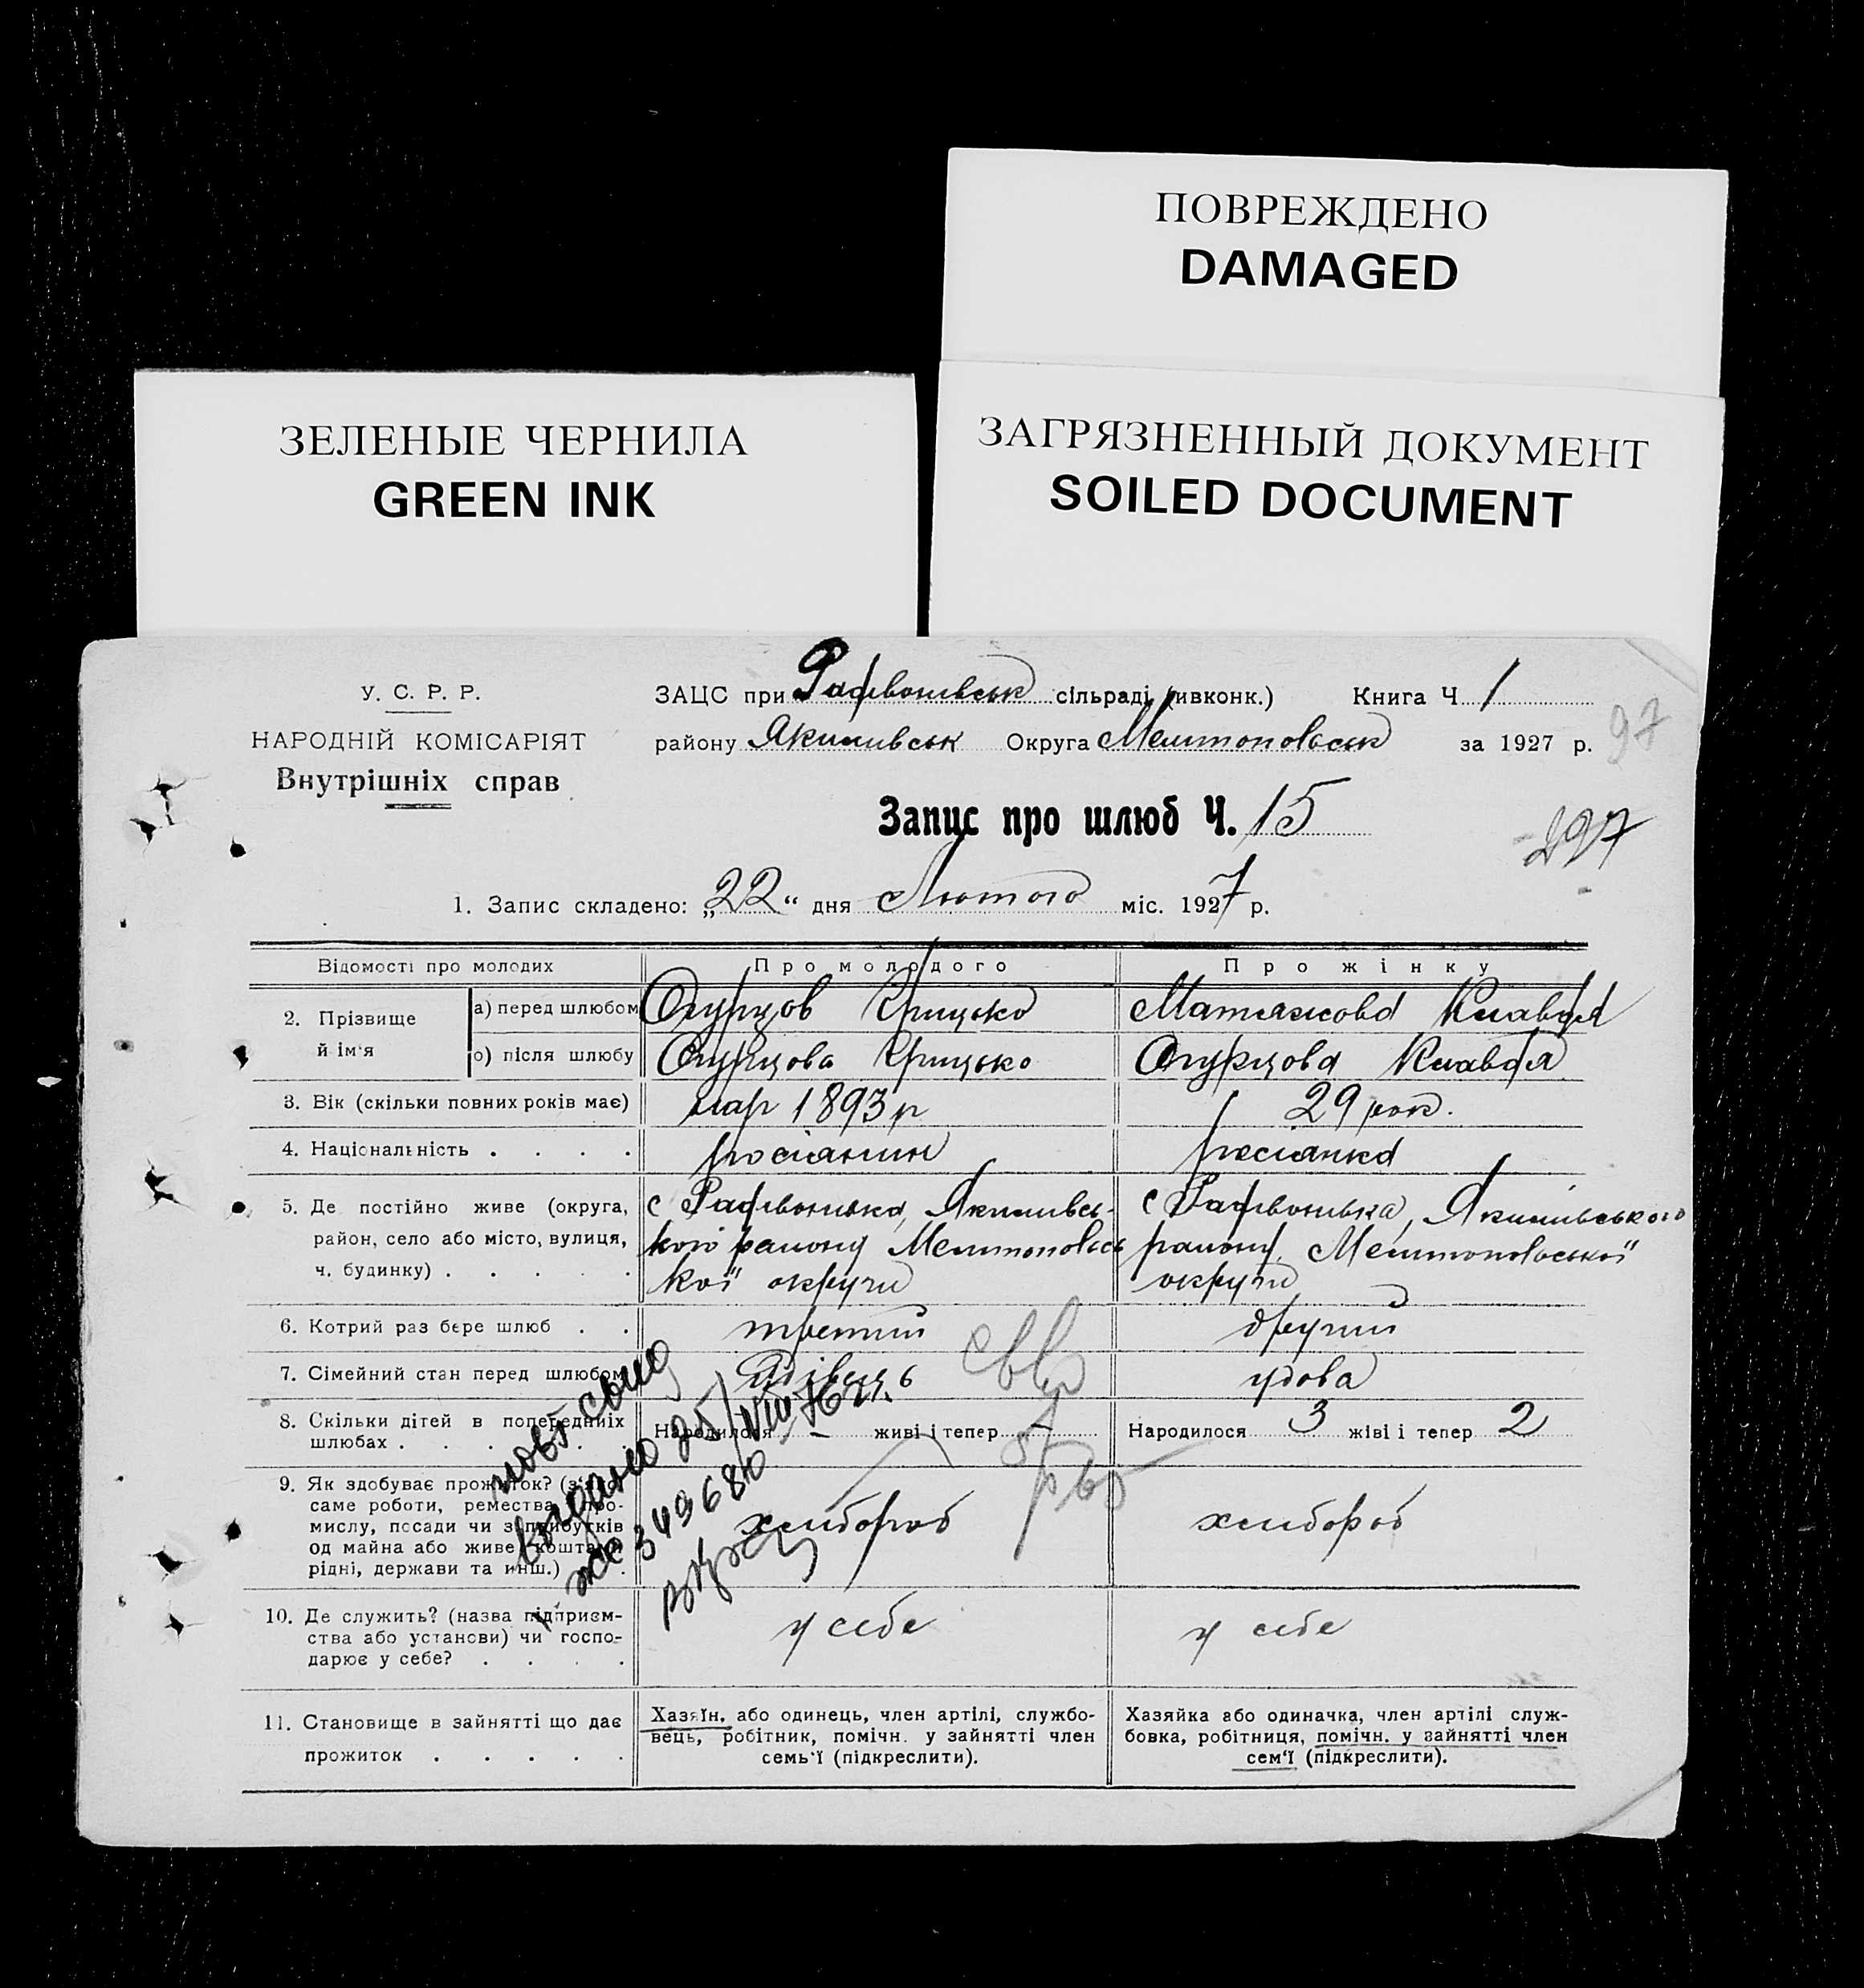 ПОВРЕЖДЕНО
DAMAGED
ЗЕЛЕНЫЕ ЧЕРНИЛА
GREEN INK
ЗАГРЯЗНЕННЫЙ ДОКУМЕНТ
SOILED DOCUMENT
У. С. Р. Р.
НАРОДНІЙ КОМІСАРІЯТ
Внутрішніх справ
ЗАЦС при сільраді (ивконк.) Книга Ч 1
району Якимівськ Округа Мелітопольськ за 1927 р.
97
Запис про шлюб Ч. 15
297
1. Запис складено: „22“ дня Лютого міс. 1927 р.
Відомості про молодих Про молодого Про жінку
2. Прізвище й ім'я
а) перед шлюбом Огурцов Грицько Клавдя
о) після шлюбу Огурцова Грицько Огурцова Клавдя
3. Вік (скільки повних років має) нар 1893 р 29 рок.
4. Національність . . . . росіянин росіянка
5. Де постійно живе (округа, район, село або місто, вулиця, ч. будинку) . . . . .
с Якимівсь-
кого району Мелітопольсь
кої округи
с Якимівського
району, Мелітопольської
округи
6. Котрий раз бере шлюб . . третий другий
7. Сімейний стан перед шлюбом удова
8. Скільки дітей в попередніх шлюбах . . . . Народилося – живі і тепер Народилося 3 жіві і тепер 2
9. Як здобуває прожиток? (з якого
саме роботи, ремества, про-
мислу, посади чи з прибутків
од майна або живе коштам
рідні, держави та инш.) .
хлібороб хлібороб
10. Де служить? (назва підприєм-
ства або установи) чи госпо-
дарює у себе? . . . .
у себе у себе
11. Становище в зайнятті що дає
прожиток . . . . .
Хазяїн, або одинець, член артілі, службо-
вець, робітник, помічн. у зайнятті член
семь'ї (підкреслити).
Хазяйка або одиначка, член артілі служ-
бовка, робітниця, помічн. у зайнятті член
сем'ї (підкреслити).